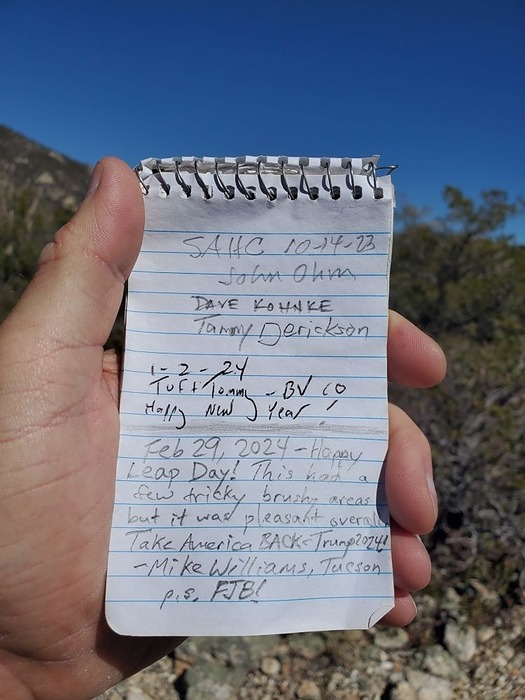 SAHC 10-14-23
John Ohm
DAVE KOHNKE
Tammy Derickson
1-2-24
Tuf + Tommy - BV CO
Happy New Year!
Feb 29, 2024 - Happy
Leap Day! This had a
few tricky brushy areas
but it was pleasant overall
Take America BACK - Trump2024!
- Mike Williams, Tucson
p.s. FJB!